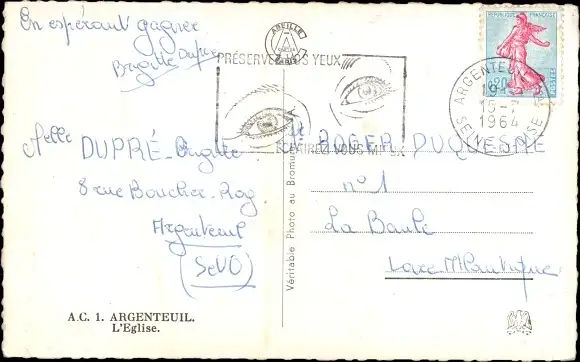 En espérant gagner
Brigitte Dupré
Melle DUPRÉ Brigitte
8 rue Boucher
Argenteuil
(S et O)
A.C. 1. ARGENTEUIL.
L'Eglise.
ABEILLE
PARIS
PRÉSERVEZ VOS YEUX
ÉCRIREZ VOUS MIEUX
Véritable Photo au Bromure
REPUBLIQUE FRANÇAISE
0,20
POSTES
ARGENTEUIL
19 H
15-7
1964
SEINE-ET-OISE
ROGER DUQUESNE
n° 1
La Baule
Loire Atlantique